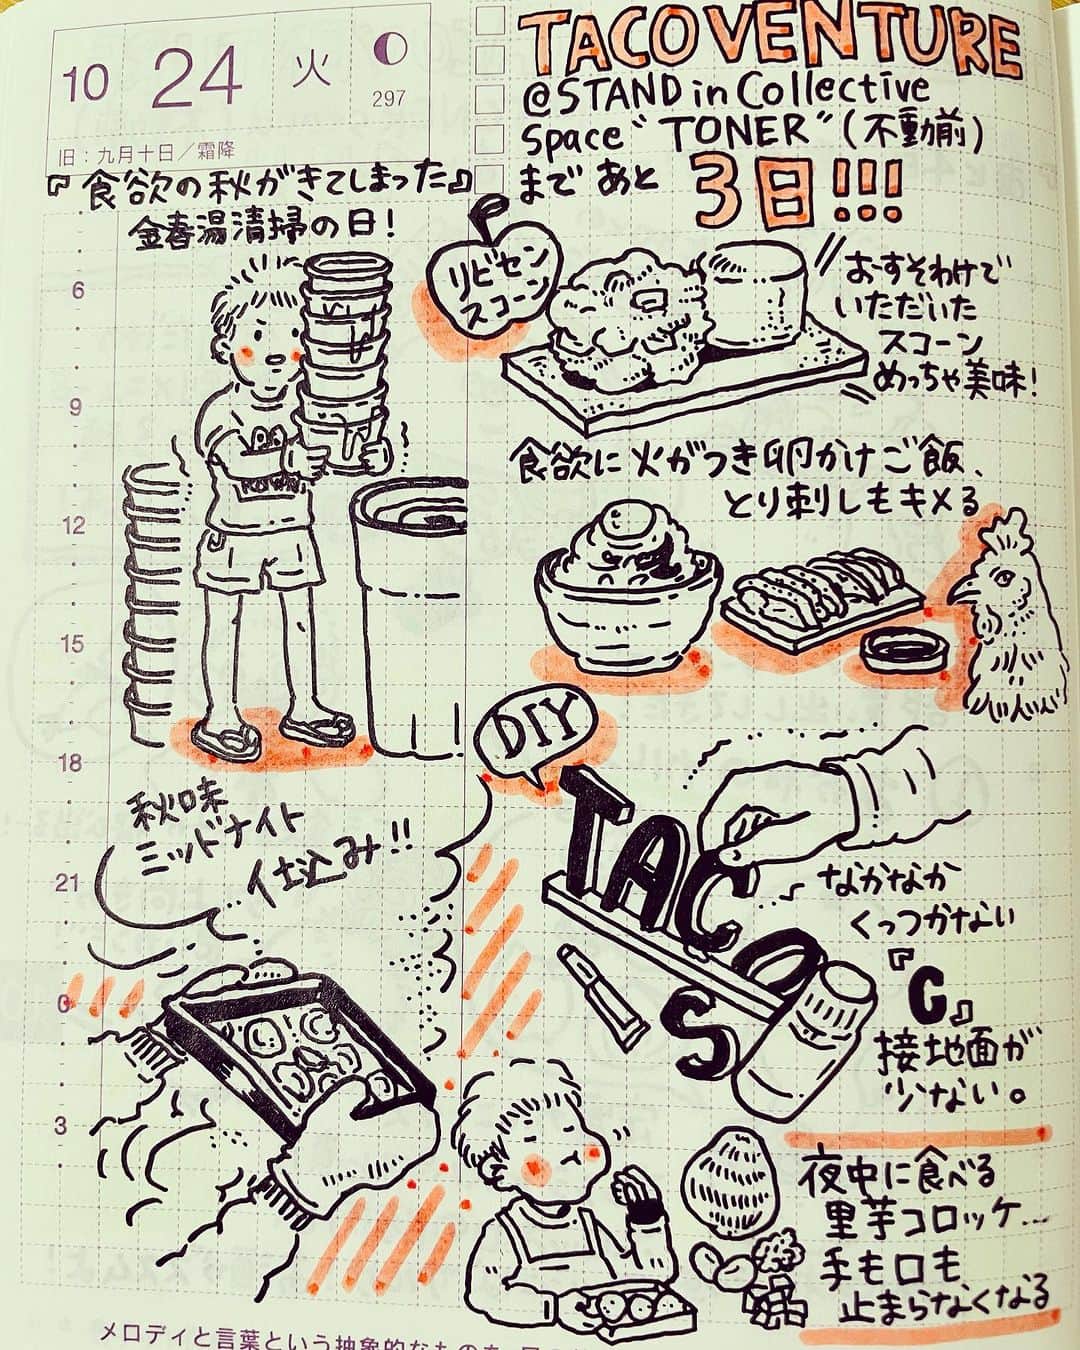 10 24 火
297
旧：九月十日／霜降
TACOVENTURE
@STAND in Collective
Space“TONER”(不動前)
まで あと 3日!!!
『食欲の秋がきてしまった』
金春湯清掃の日!
リビセン
スコーン
おーすそわけで
いただいた
スコーン
めっちゃ美味!
食欲に火がつき卵かけご飯、
とり刺しもキメる
DIY
TACOS
なかなか
くっつかない
『C』
接地面が
少ない。
秋味
ミッドナイト
仕込み!!
夜中に食べる
里芋コロッケ...
手も口も
止まらなくなる
6
9
12
15
18
21
0
3
メロディと言葉という抽象的なものを、